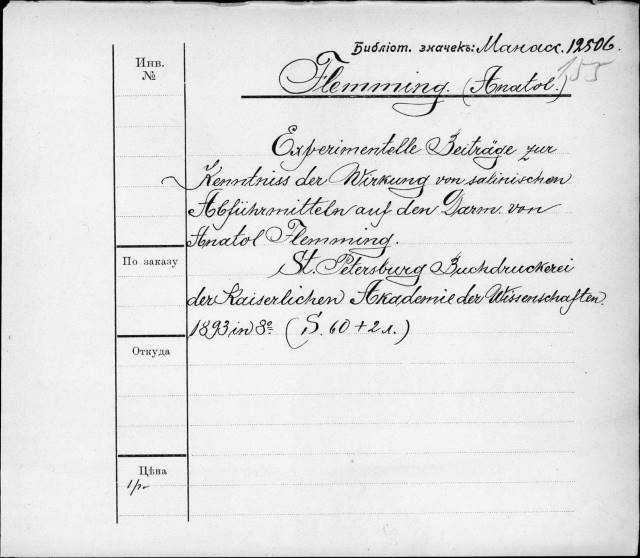 Библіот. значекъ: Манасс. 12506.
155
Инв.
№
Flemming. (Anatol.)
Experimentelle Beiträge zur
Kenntniss der Wirkung von salinischen
Abführmitteln auf den Darm. von
Anatol Flemming.
По заказу
St. Petersburg Buchdruckerei
der Kaiserlichen Akademie der Wissenschaften.
1893, in 8º. (S. 60 + 2 л.)
Откуда
Цѣна
1/р-